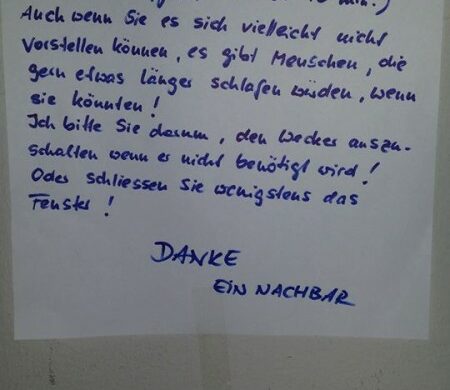 min.)
Auch wenn Sie es sich vielleicht nicht
vorstellen können, es gibt Menschen, die
gern etwas länger schlafen würden, wenn
sie könnten!
Ich bitte Sie darum, den Wecker auszu-
schalten wenn er nicht benötigt wird!
Oder schliessen Sie wenigstens das
Fenster!
DANKE
EIN NACHBAR